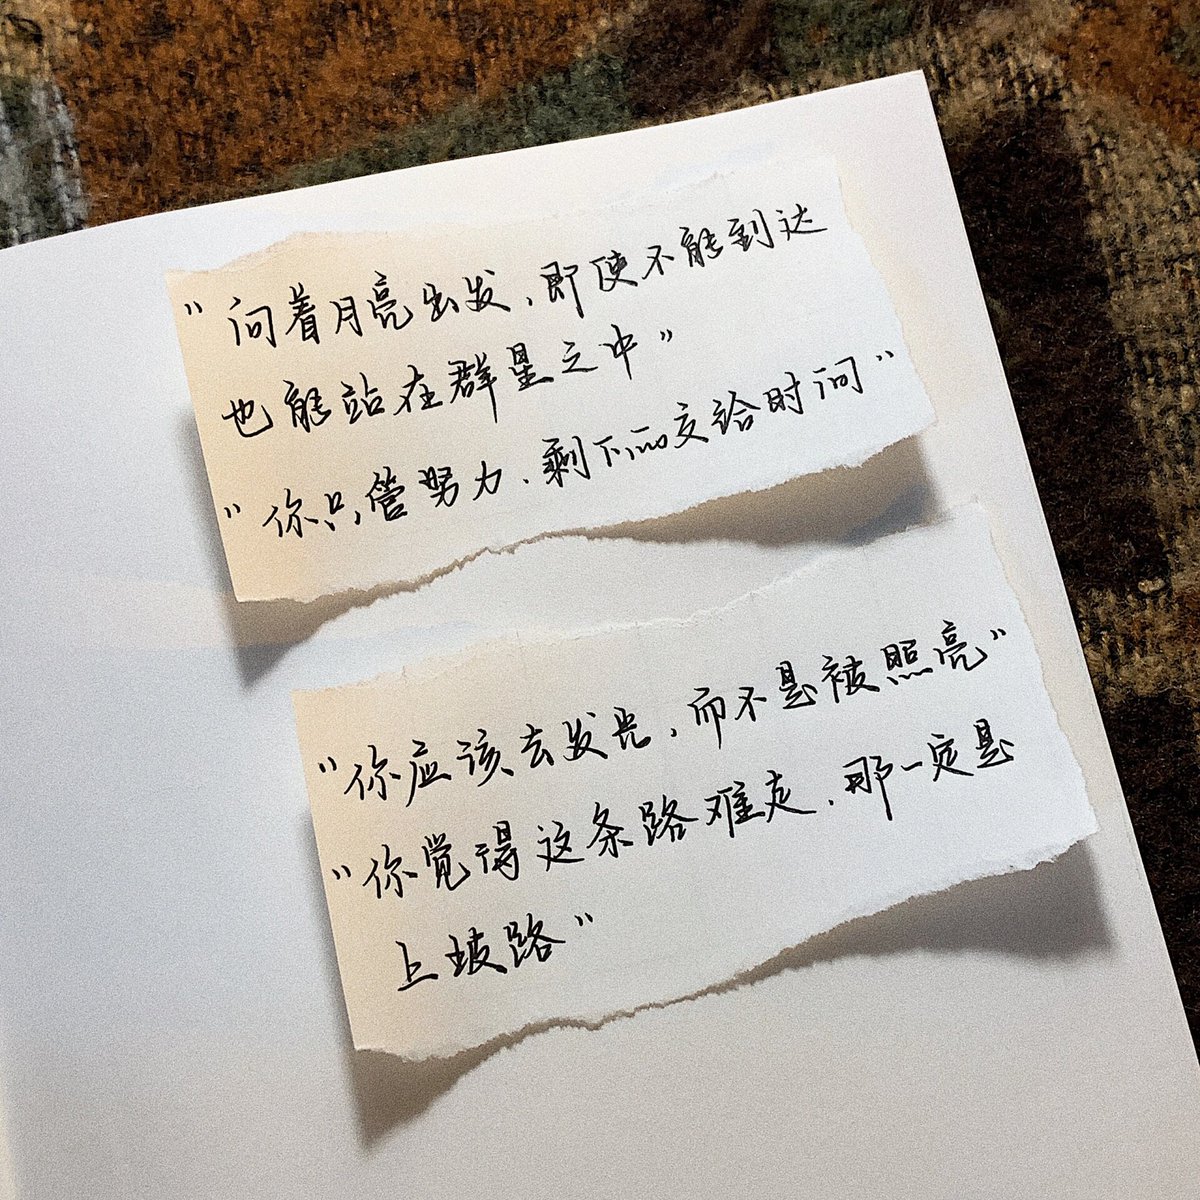 "向着月亮出发,即使不能到达
也能站在群星之中"
"你只管努力、剩下的交给时间"
"你应该去发光,而不是被照亮"
"你觉得这条路难走,那一定是
上坡路"